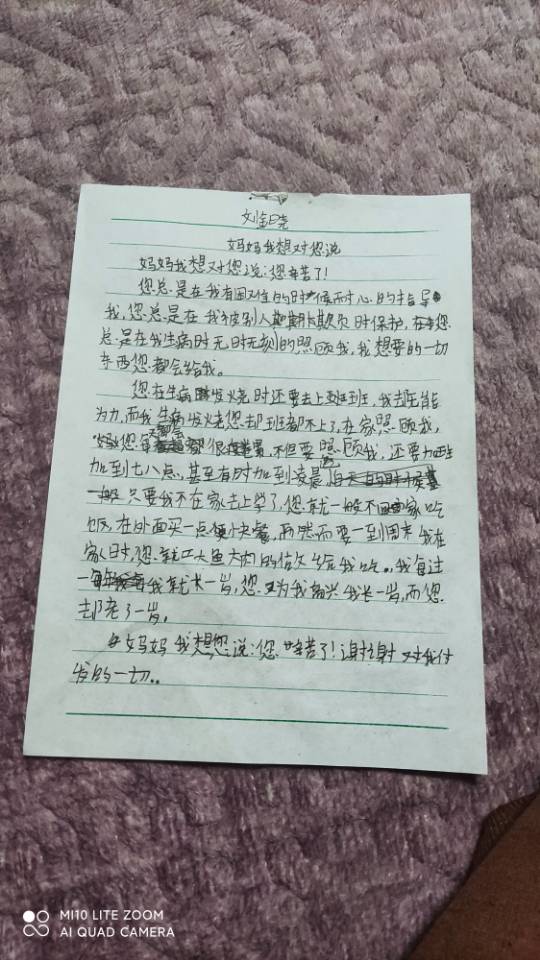 妈妈我想对您说
妈妈我想对您说:您辛苦了!
您总是在我有困难的时候耐心的指导
我,您总是在我被别人欺负时保护,在您
总是在我生病时无时无刻的照顾我,我想要的一切
东西您都会给我。
您在生病发烧时还要去上班,我却无能
为力,而我生病发烧您却班都不上了,在家照顾我,
妈您每天都很累,不但要照顾我,还要加班
加到七八点,甚至有时加到凌晨
只要我不在家去上学了,您就一般不回家吃
饭,在外面买一点便小快餐,而然而要一到周末我在
家时,您就工大鱼大肉的做给我吃。我每过
一我就长一岁,您又为我高兴我长一岁,而您
却老了一岁。
妈妈我想您说:您辛苦了!谢谢对我付
发的一切..
MI10 LITE ZOOM
AI QUAD CAMERA